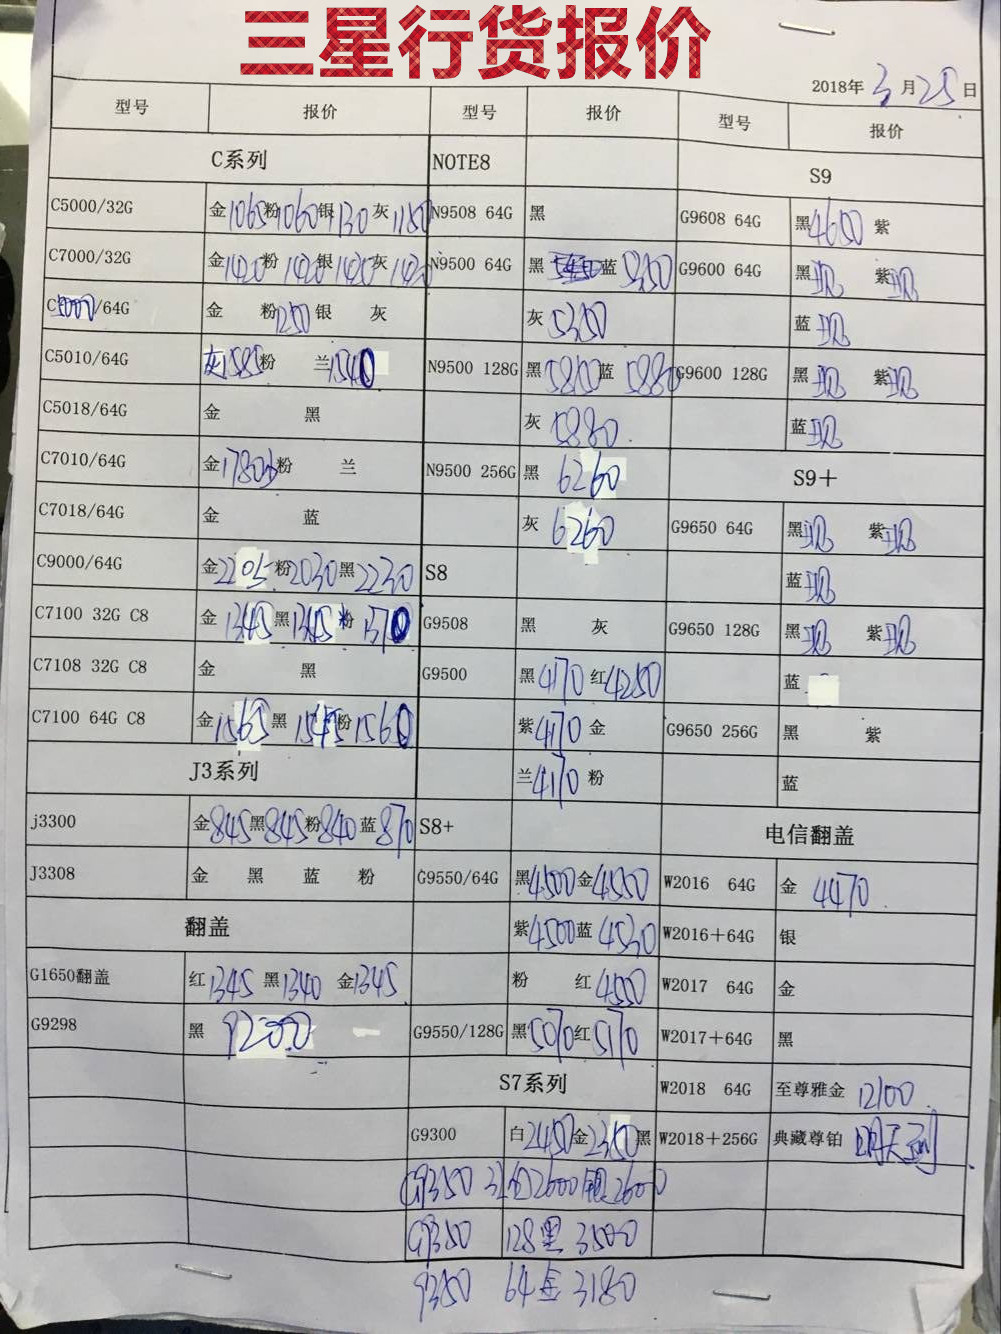 三星行货报价
2018年3月25日
型号 报价 型号 报价 型号 报价
C系列 NOTE8 S9
C5000/32G 金1065粉1060银1130灰1150 N9508 64G 黑 G9608 64G 黑4650 紫
C7000/32G 金1420粉1420银1420灰1420 N9500 64G 黑 蓝5450 G9600 64G 黑现 紫现
C5000/64G 金 粉1250银 灰 灰5350 蓝现
C5010/64G 灰1585粉 兰1540 N9500 128G 黑5860蓝5880 G9600 128G 黑现 紫现
C5018/64G 金 黑 灰5880 蓝现
C7010/64G 金1780粉 兰 N9500 256G 黑 6260 S9+
C7018/64G 金 蓝 灰6260 G9650 64G 黑现 紫现
C9000/64G 金2205粉2030黑2230 S8 蓝现
C7100 32G C8 金1345黑1345粉1370 G9508 黑 灰 G9650 128G 黑现 紫现
C7108 32G C8 金 黑 G9500 黑4170 红4250 蓝
C7100 64G C8 金1565黑1545粉1560 紫4170金 G9650 256G 黑 紫
J3系列 兰4170粉 蓝
j3300 金845黑845粉840蓝870 S8+ 电信翻盖
J3308 金 黑 蓝 粉 G9550/64G 黑4500金4550 W2016 64G 金 4470
翻盖 紫4500蓝4530 W2016+64G 银
G1650翻盖 红1345 黑1340 金1345 粉 红4550 W2017 64G 金
G9298 黑 9200 G9550/128G 黑5070红5170 W2017+64G 黑
S7系列 W2018 64G 至尊雅金 12100
G9300 白2450金2350黑 W2018+256G 典藏尊铂 明天到
G9350 32 2600银2600
G9350 128黑 3500
9350 64金 3180